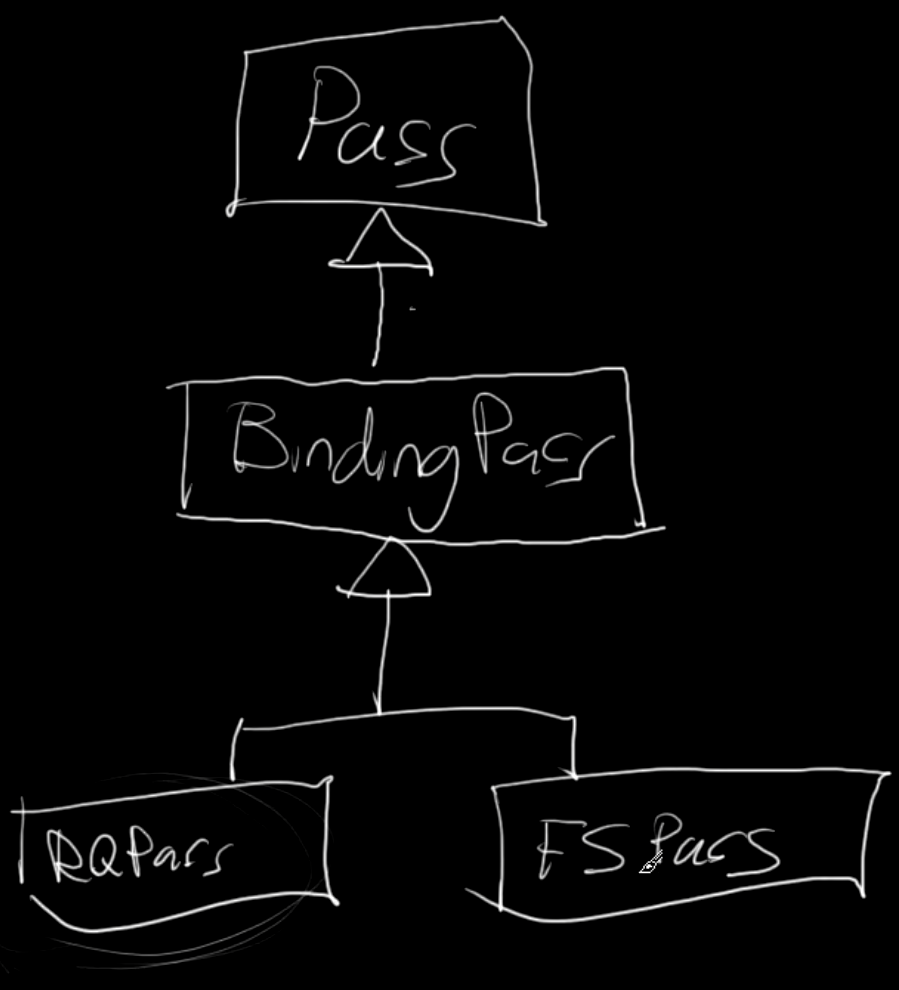 Pass
BindingPass
RQPass
FSPass